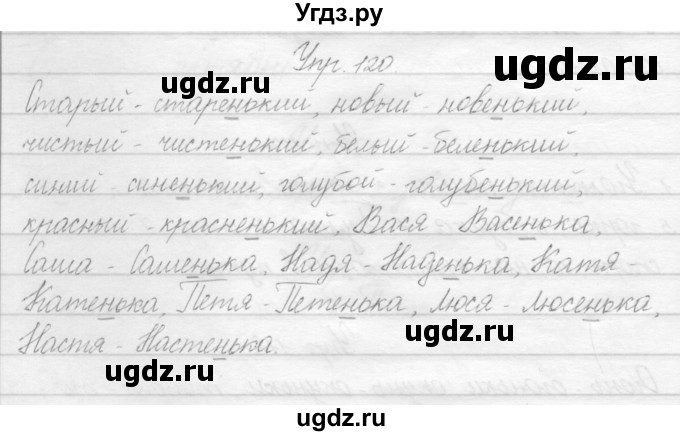 Угдз.ру
Упр. 120.
ugdz.ru
Старый - старенький, новый - новенький,
ugdz.ru
чистый - чистенький, белый - беленький,
синий - синенький, голубой - голубенький,
ugdz.ru
красный - красненький, Вася Васенька,
Саша - Сашенька, Надя - Наденька, Катя -
Катенька, Петя - Петенька, Люся - Люсенька,
ugdz.ru
Настя - Настенька.
ugdz.ru
ugdz.ru